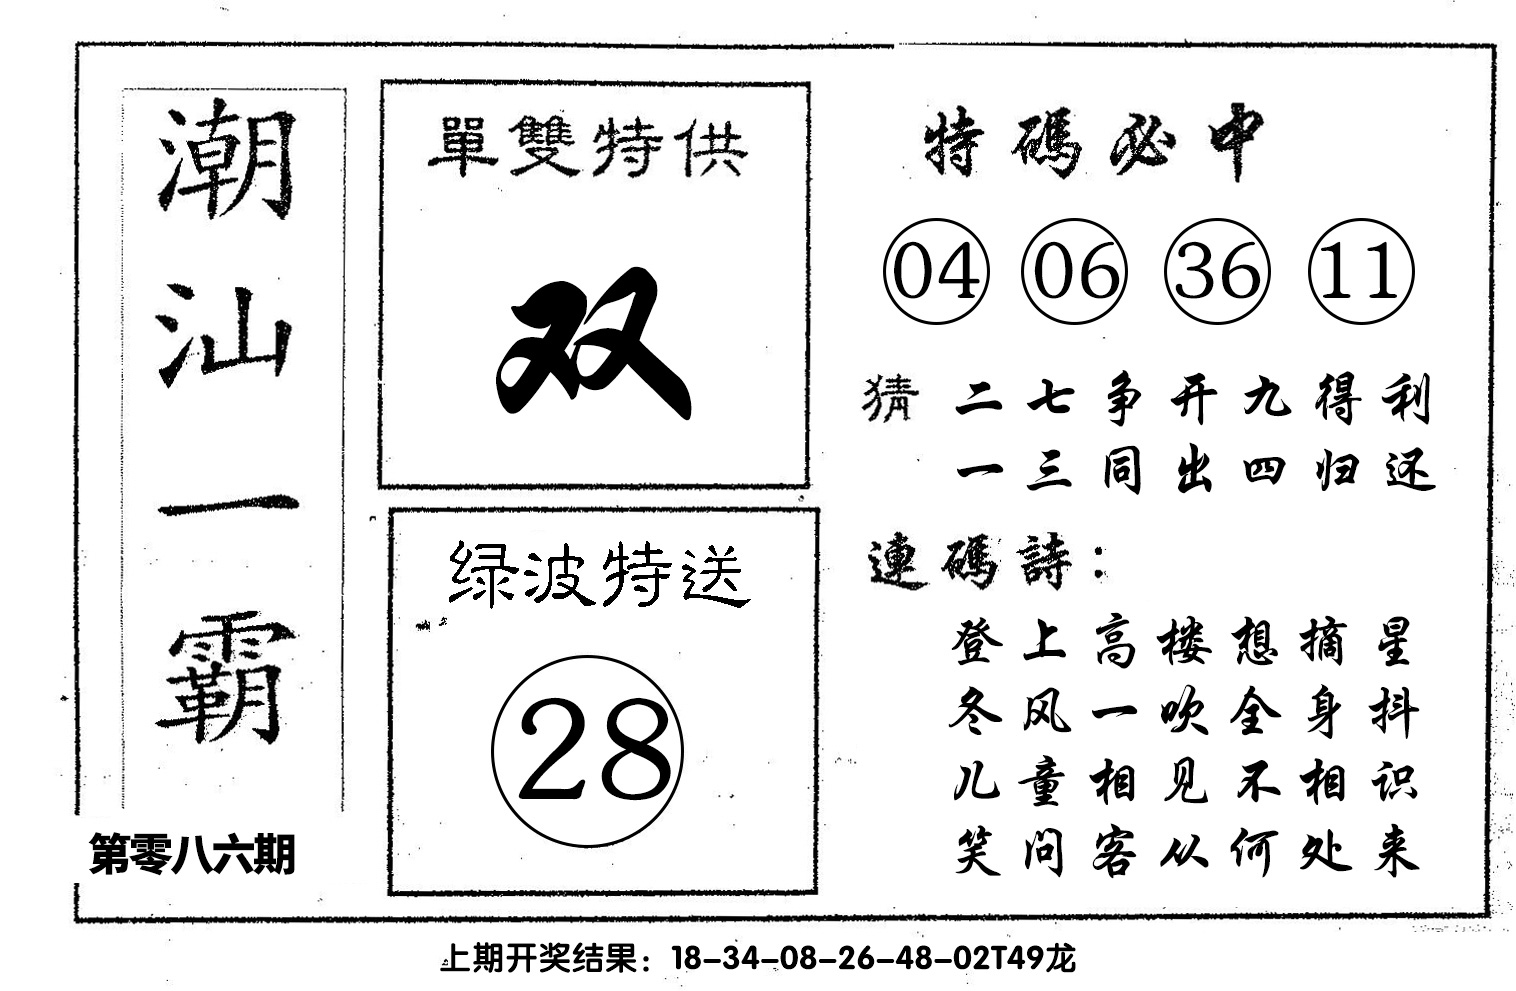 潮汕一霸
第零八六期
單雙特供
双
绿波特送
28
特碼必中
04 06 36 11
猜 二七争开九得利
一三同出四归还
連碼詩：
登上高楼想摘星
冬风一吹全身抖
儿童相见不相识
笑问客从何处来
上期开奖结果：18-34-08-26-48-02T49龙